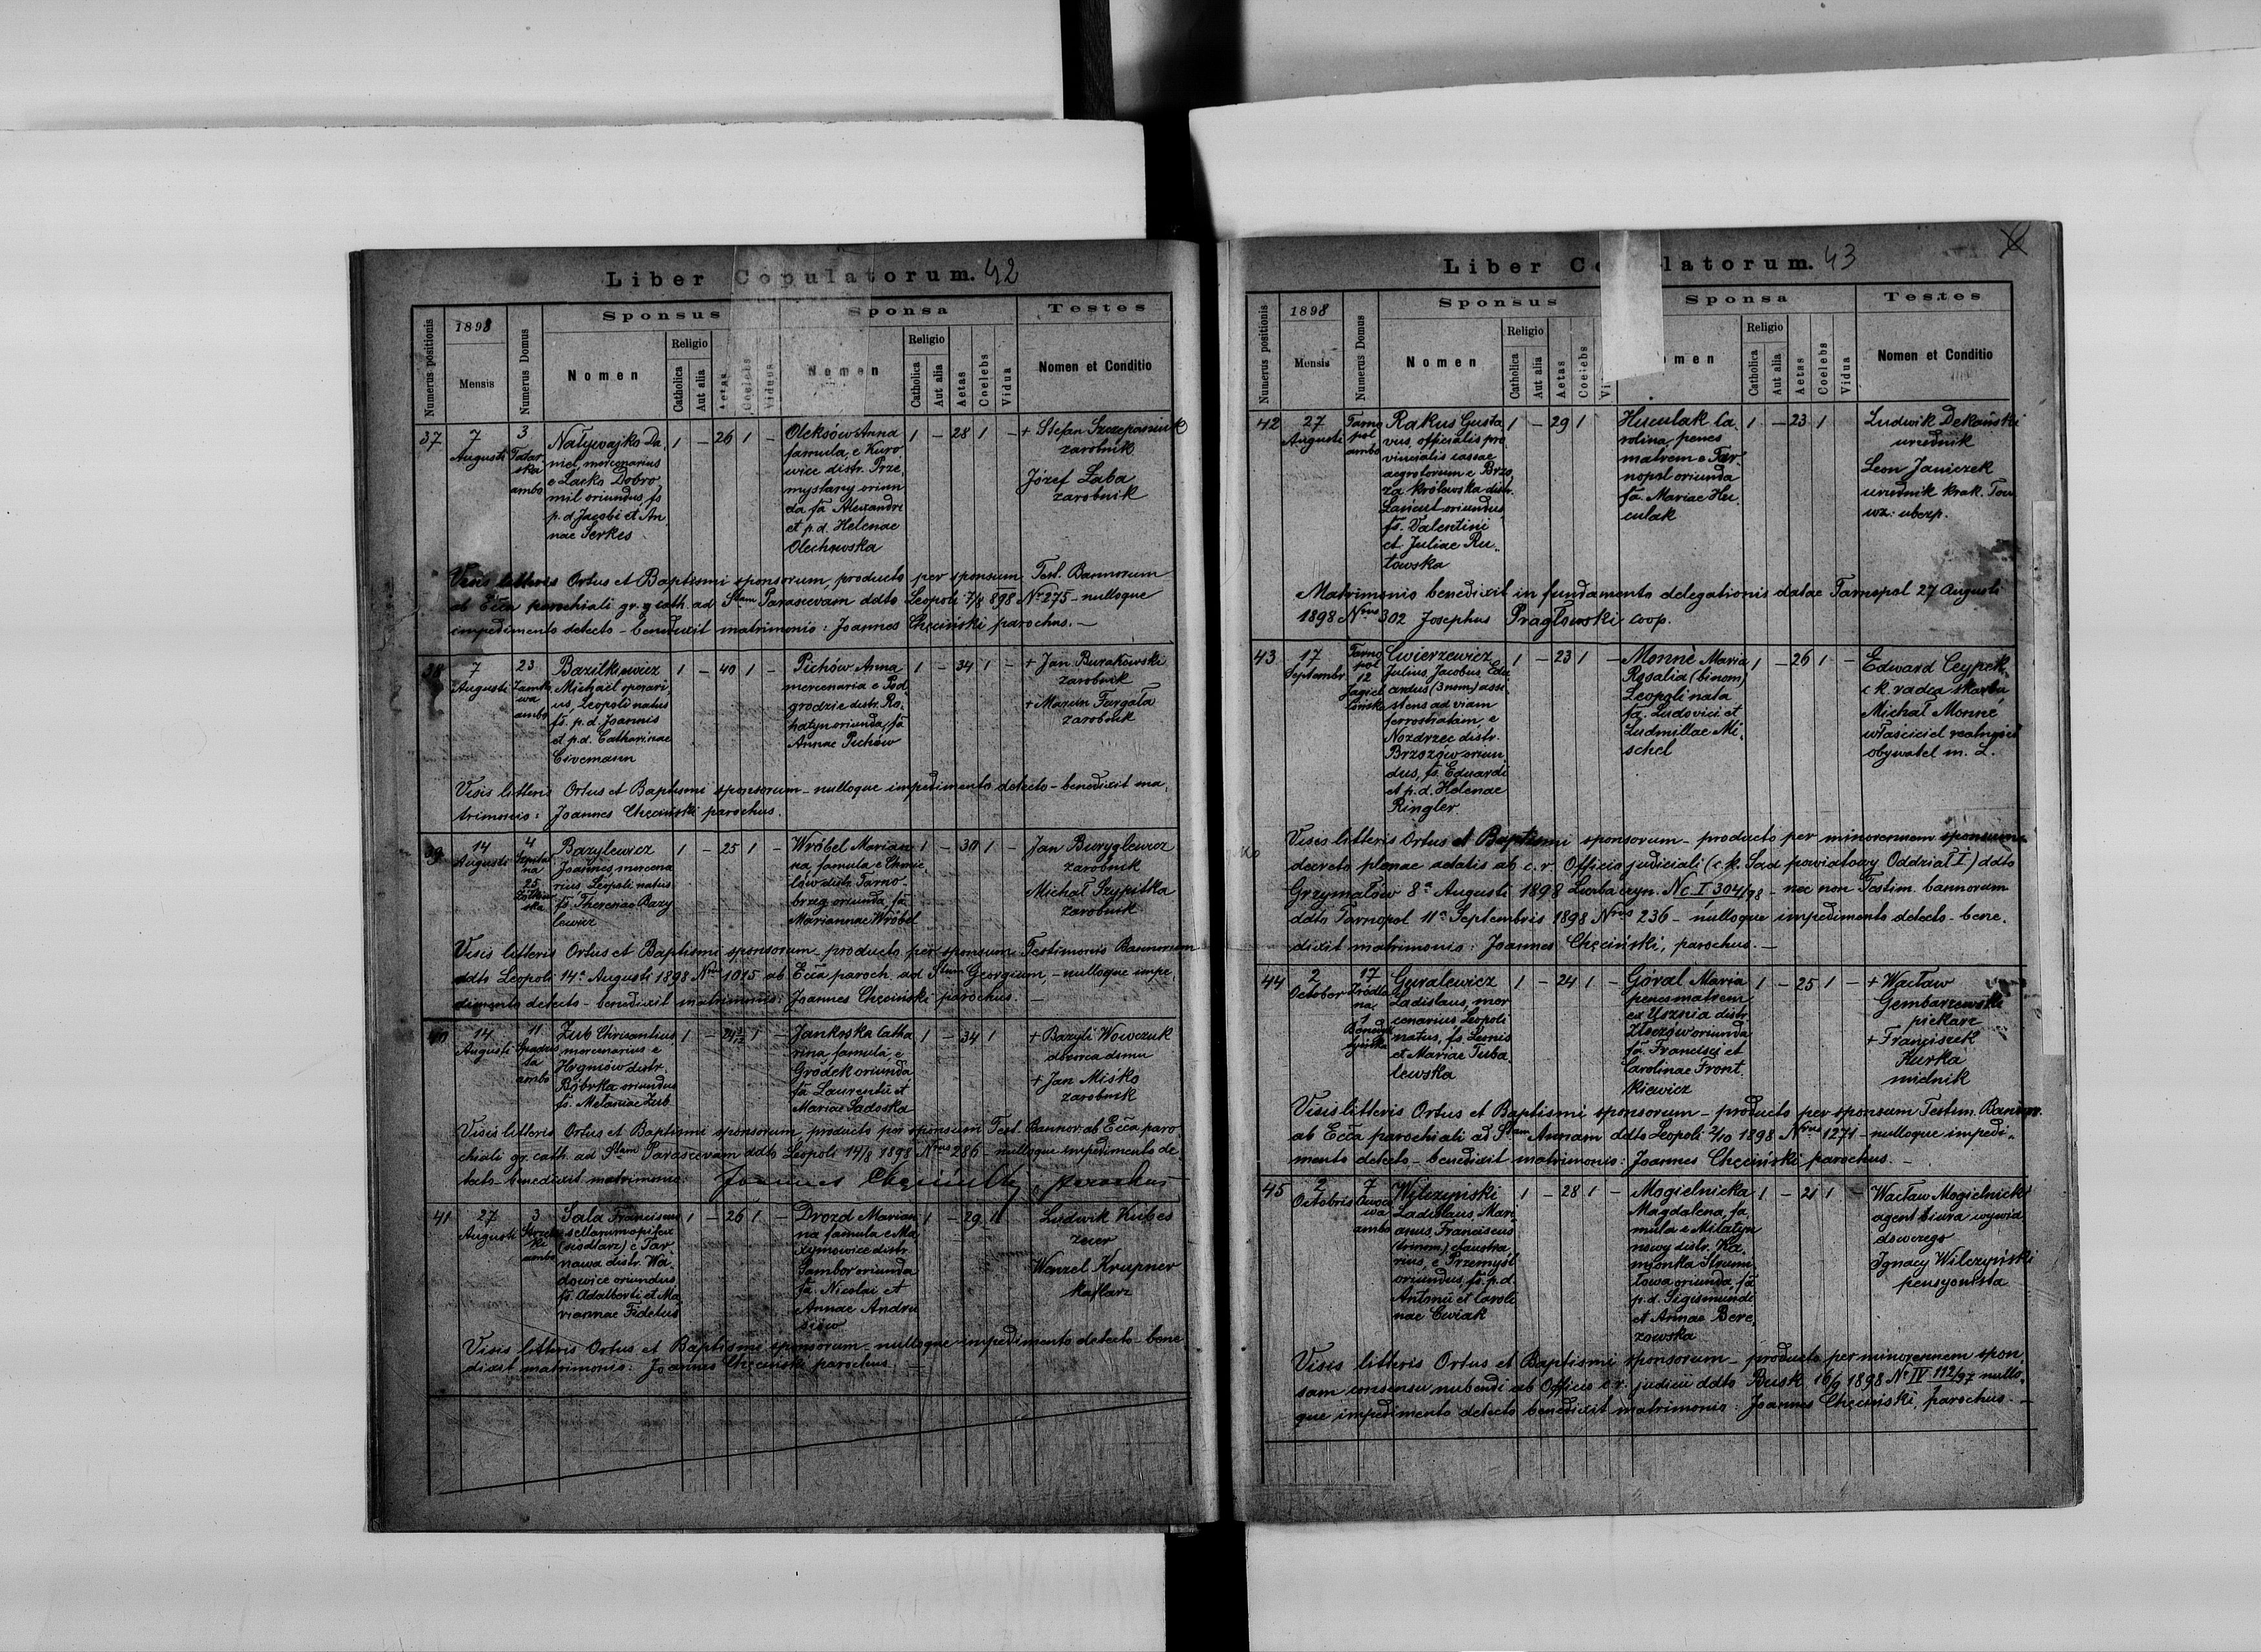 Liber Copulatorum. 42
Numerus positionis
1898
Mensis
Numerus Domus
Sponsus
Nomen
Religio
Catholica
Aut alia
Aetas
Coelebs
Viduus
Sponsa
Nomen
Religio
Catholica
Aut alia
Aetas
Coelebs
Vidua
Testes
Nomen et Conditio
37
7
Augusti
3
Tatar
ska
ambo
Natywajko Da,
niel, mercenarius
e Lacko Dobro
mil oriundus, fs
p. d. Jacobi et An
nae Serkes
1 – 26 1 –
Oleksów Anna
famula, e Kuro
wice distr. Prze
myślany oriun
da fa Alexandri
et p. d. Helenae
Olechowska
1 – 28 1 –
+ Stefan Szczepaniuk
zarobnik
Józef Łaba
zarobnik
Visis litteris Ortus et Baptismi sponsorum, producto per sponsum Test. Bannorum
ab Ecca parochiali gr. cath. ad Stam Parascevam ddto Leopoli 7/8 898 Nr 275 – nulloque
impedimento detecto – benedixit matrimonio: Joannes Chęciński parochus. –
38
7
Augusti
23
Zamko
wa
ambo
Bazilkiewicz
Michael operari
us, Leopoli natus
fs. p. d. Joannis
et p. d. Catharinae
Civemann
1 – 40 1 –
Pichów Anna
mercenaria e Pod
grodzie distr. Ro,
hatyn oriunda, fa
Annae Pichów
1 – 34 1 –
+ Jan Burakowski
zarobnik
+ Maxim Furgała
zarobnik
Visis litteris Ortus et Baptismi sponsorum – nulloque impedimento detecto – benedixit ma,
trimonio: Joannes Chęciński parochus.
39
14
Augusti
4
Szpital
na
25
Żółkiew
ska
Bazylewicz
Joannes, mercena
rius, Leopoli natus
fs. Theresae Bazy
lewicz
1 – 25 1 –
Wróbel Marian
na famula e Chmie
lów distr. Tarno-
brzeg oriunda, fa
Mariannae Wróbel
1 – 30 1 –
Jan Buryglewicz
zarobnik
Michał Szypitka
zarobnik
Visis litteris Ortus et Baptismi sponsorum – producto per sponsum Testimonio Bannorum
ddto Leopoli 14a Augusti 1898 Nro 1015 ab Ecca paroch. ad Stum Georgium, – nulloque impe,
dimento detecto – benedixit matrimonio: Joannes Chęciński parochus. –
40
14
Augusti
11
ambo
Zub Chrisanthus
mercenarius e
distr.
Bóbrka oriundus
fs. Melaniae Zub
1 – 1 –
Jankoska Catha
rina famula, e
Gródek oriunda
fa Laurentii et
Mariae Sadoska
1 – 34 1 –
+ Bazyli Wowczuk
dozorca domu
+ Jan Miśko
zarobnik
Visis litteris Ortus et Baptismi sponsorum, producto per sponsum Test. Bannor. ab Ecca paro
chiali gr. cath. ad Stam Parascevam ddto Leopoli 14/8 1898 Nro 286 – nulloque impedimento de
tecto – benedixit matrimonio: Joannes Chęciński, parochus
41
27
Augusti
3
ambo
Sala Franciscus
sellarum opifex
(siodlarz) e Tar
nawa distr. Wa
dowice oriundus
fs. Adalberti et Ma
riannae Fidelus
1 – 26 1 –
Drozd Marian
na famula e Ma
xymowice distr.
Sambor oriunda
fa. Nicolai et
Annae Andru
siów
1 – 29 1
Ludwik Kubes
zecer
Wenzel Krupner
kaflarz
Visis litteris Ortus et Baptismi sponsorum – nulloque impedimento detecto – bene
dixit matrimonio: Joannes Chęciński parochus. –
Liber Copulatorum. 43
Numerus positionis
1898
Mensis
Numerus Domus
Sponsus
Nomen
Religio
Catholica
Aut alia
Aetas
Coelebs
Sponsa
Religio
Catholica
Aut alia
Aetas
Coelebs
Vidua
Testes
Nomen et Conditio
42
27
Augusti
Tarno
pol
ambo
Rakus Gusta
vus, officialis pro
vincialis cassae
aegrotorum e Brzo
za Królewska distr.
Łańcut oriundus
fs. Valentini
et Juliae Ru,
towska
1 – 29 1
Huculak Ca,
rolina, penes
matrem e Tar
nopol oriunda
fa. Mariae Hu
culak
1 – 23 1
Ludwik Dekański
urzędnik
Leon Janiczek
urzędnik krak. Tow
wz. ubezp.
Matrimonio benedixit in fundamento delegationis datae Tarnopol 27 Augusti
1898 Nro 302 Josephus Pragłowski coop.
43
17
Septembr.
Tarno
pol
12
Jagiel
lońska
Cwierzewicz
Julius, Jacobus Edu
ardus (3 nom) assi
stens ad viam
ferrostratam, e
Nozdrzec distr.
Brzozów oriun
dus, fs. Eduardi
et p. d. Helenae
Ringler
1 – 23 1 –
Monnè Maria
Rosalia (binom)
Leopoli nata
fa. Ludovici et
Ludmillae Mi,
schel
1 – 26 1 –
Edward Ceypek
c k. radca skarbu
Michał Monné
właściciel realności
obywatel m. L.
Visis litteris Ortus et Baptismi sponsorum – producto per minorennem sponsum
decreto plenae aetatis ab c. r. Officio judiciali (c. k. Sąd powiatowy Oddział I) ddto
Grzymałów 8a Augusti 1898 Liczba czyn. Nc I 304/98 – nec non Testim. bannorum
ddto Tarnopol 11a Septembris 1898 Nro 236 – nulloque impedimento detecto – bene,
dixit matrimonio: Joannes Chęciński, parochus. –
44
2
October
17
Źródla
na
1
Guralewicz
Ladislaus, mer
cenarius, Leopoli
natus, fs.
et Mariae Tuba
lewska
1 – 24 1 –
Góral Maria
penes matrem
ex Usznia distr
Złoczów oriunda
fa. Francisci et
Carolinae Front,
kiewicz
1 – 25 1 –
+ Wacław
Gembarzewski
piekarz
+ Franciszek
Kurka
midnik
Visis litteris Ortus et Baptismi sponsorum – producto per sponsum Testim. Bannor.
ab Ecca parochiali ad Stam Annam ddto Leopoli 2/10 1898 Nro 1271 – nulloque impedi,,
mento detecto – benedixit matrimonio: Joannes Chęciński parochus. –
45
2
Octobris
7
Owoco
wa
ambo
Wilczyński
Ladislaus Mari
anus Franciscus
(trinom)
e Przemyśl
oriundus, fs. p. d.
Antonii et Caroli
nae Cwiak
1 – 28 1 –
Mogielnicka
Magdalena, fa,
mula e Milatyn
nowy distr. Ka,
mionka Strumi
łowa oriunda, fa
p. d. Sigismundi
et Annae Bere,
zowska
1 – 21 1 –
Wacław Mogielnicki
agent biura wywia
dowczego
Ignacy Wilczyński
pensyonista
Visis litteris Ortus et Baptismi sponsorum – producto per minorennem spon,
sam consensu nubendi ab Officio c. r. judicii ddto Busk 16/9 1898 Nr IV 112/97 nullo,
que impedimento detecto benedixit matrimonio: Joannes Chęciński, parochus. –